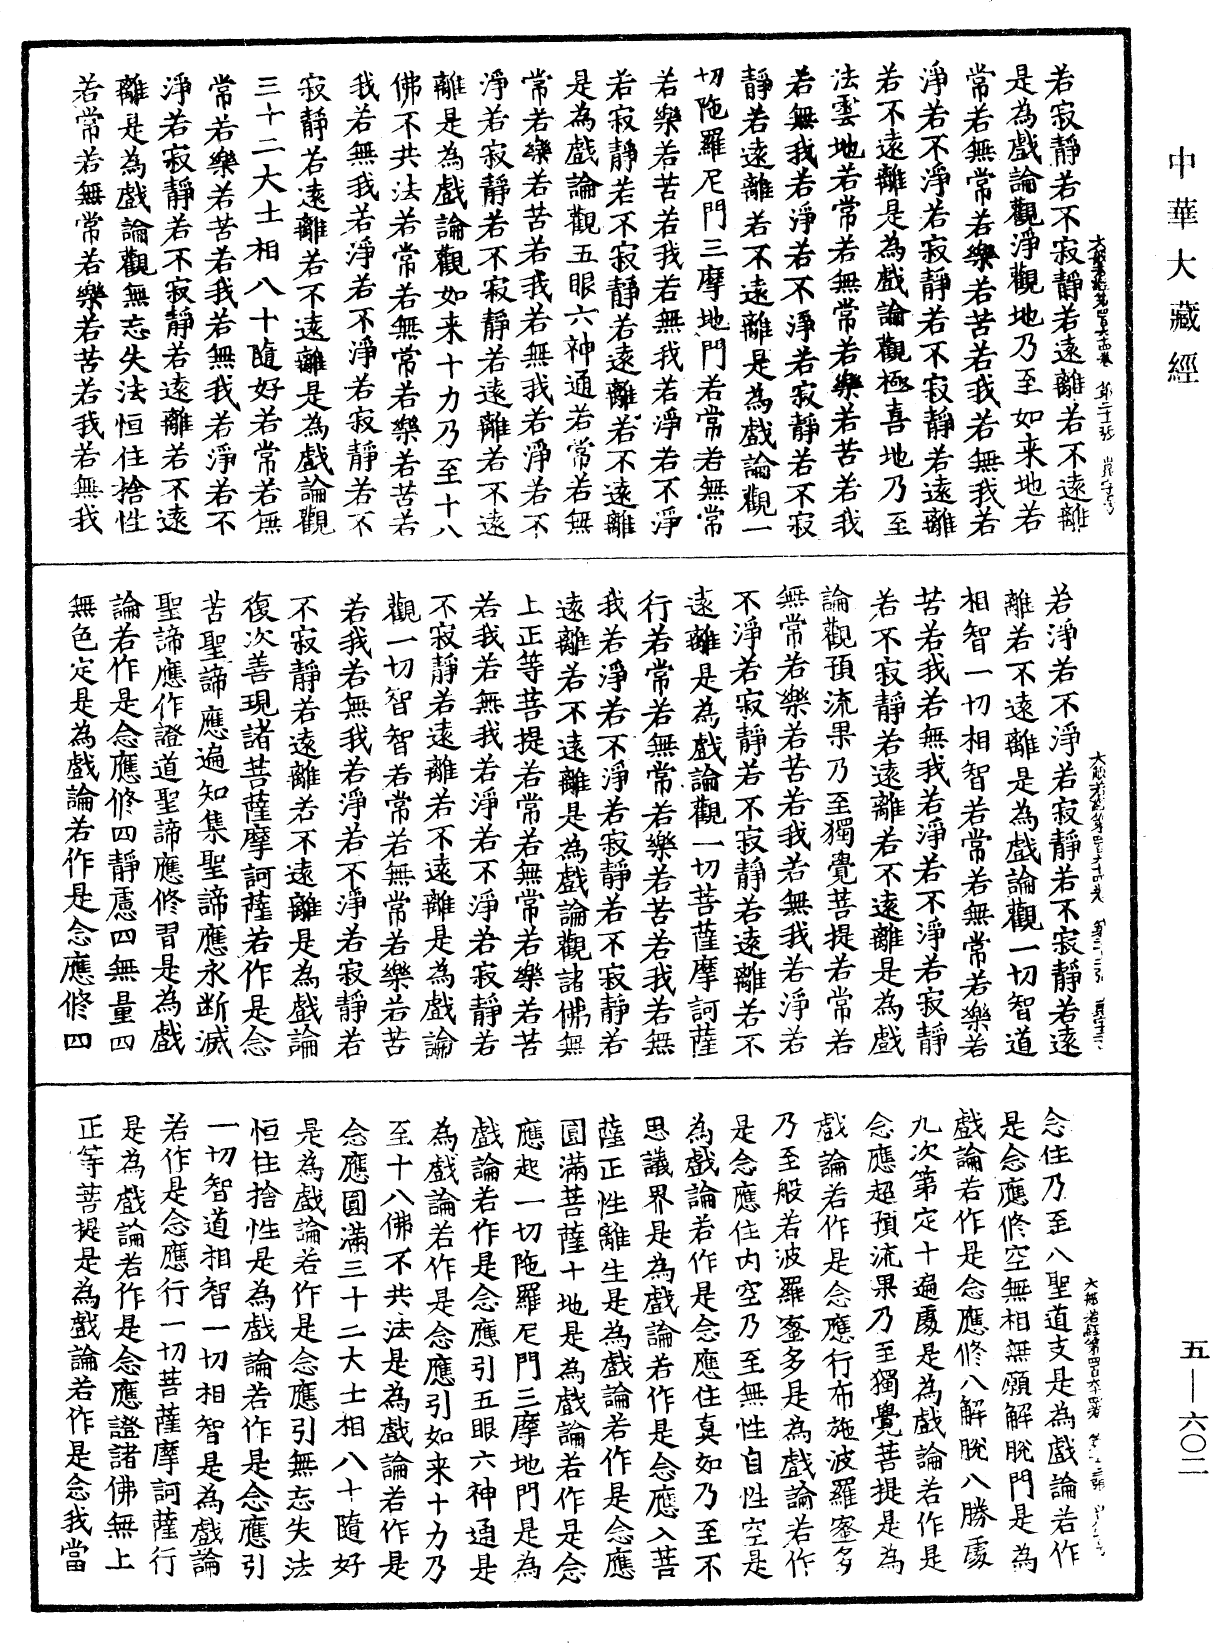 中華大藏經
若寂靜若不寂靜若遠離若不遠離
是為戲論觀淨觀地乃至如来地若
常若無常若樂若苦若我若無我若
淨若不淨若寂靜若不寂靜若遠離
若不遠離是為戲論觀極喜地乃至
法雲地若常若無常若樂若苦若我
若無我若淨若不淨若寂靜若不寂
靜若遠離若不遠離是為戲論觀一
切陁羅尼門三摩地門若常若無常
若樂若苦若我若無我若淨若不淨
若寂靜若不寂靜若遠離若不遠離
是為戲論觀五眼六神通若常若無
常若樂若苦若我若無我若淨若不
淨若寂靜若不寂靜若遠離若不遠
離是為戲論觀如来十力乃至十八
佛不共法若常若無常若樂若苦若
我若無我若淨若不淨若寂靜若不
寂靜若遠離若不遠離是為戲論觀
三十二大士相八十隨好若常若無
常若樂若苦若我若無我若淨若不
淨若寂靜若不寂靜若遠離若不遠
離是為戲論觀無忘失法恒住捨性
若常若無常若樂若苦若我若無我
若淨若不淨若寂靜若不寂靜若遠
離若不遠離是為戲論觀一切智道
相智一切相智若常若無常若樂若
苦若我若無我若淨若不淨若寂靜
若不寂靜若遠離若不遠離是為戲
論觀預流果乃至獨覺菩提若常若
無常若樂若苦若我若無我若淨若
不淨若寂靜若不寂靜若遠離若不
遠離是為戲論觀一切菩薩摩訶薩
行若常若無常若樂若苦若我若無
我若淨若不淨若寂靜若不寂靜若
遠離若不遠離是為戲論觀諸佛無
上正等菩提若常若無常若樂若苦
若我若無我若淨若不淨若寂靜若
不寂靜若遠離若不遠離是為戲論
觀一切智智若常若無常若樂若苦
若我若無我若淨若不淨若寂靜若
不寂靜若遠離若不遠離是為戲論
復次善現諸菩薩摩訶薩若作是念
苦聖諦應遍知集聖諦應永断滅
聖諦應作證道聖諦應修習是為戲
論若作是念應修四靜慮四無量四
無色定是為戲論若作是念應修四
念住乃至八聖道支是為戲論若作
是念應修空無相無願解脫門是為
戲論若作是念應修八解脫八勝處
九次第定十遍處是為戲論若作是
念應超預流果乃至獨覺菩提是為
戲論若作是念應行布施波羅蜜多
乃至般若波羅蜜多是為戲論若作
是念應住内空乃至無性自性空是
為戲論若作是念應住真如乃至不
思議界是為戲論若作是念應入菩
薩正性離生是為戲論若作是念應
圓滿菩薩十地是為戲論若作是念
應起一切陁羅尼門三摩地門是為
戲論若作是念應引五眼六神通是
為戲論若作是念應引如来十力乃
至十八佛不共法是為戲論若作是
念應圓滿三十二大士相八十隨好
是為戲論若作是念應引無忘失法
恒住捨性是為戲論若作是念應引
一切智道相智一切相智是為戲論
若作是念應行一切菩薩摩訶薩行
是為戲論若作是念應證諸佛無上
正等菩提是為戲論若作是念我當
五—六〇二